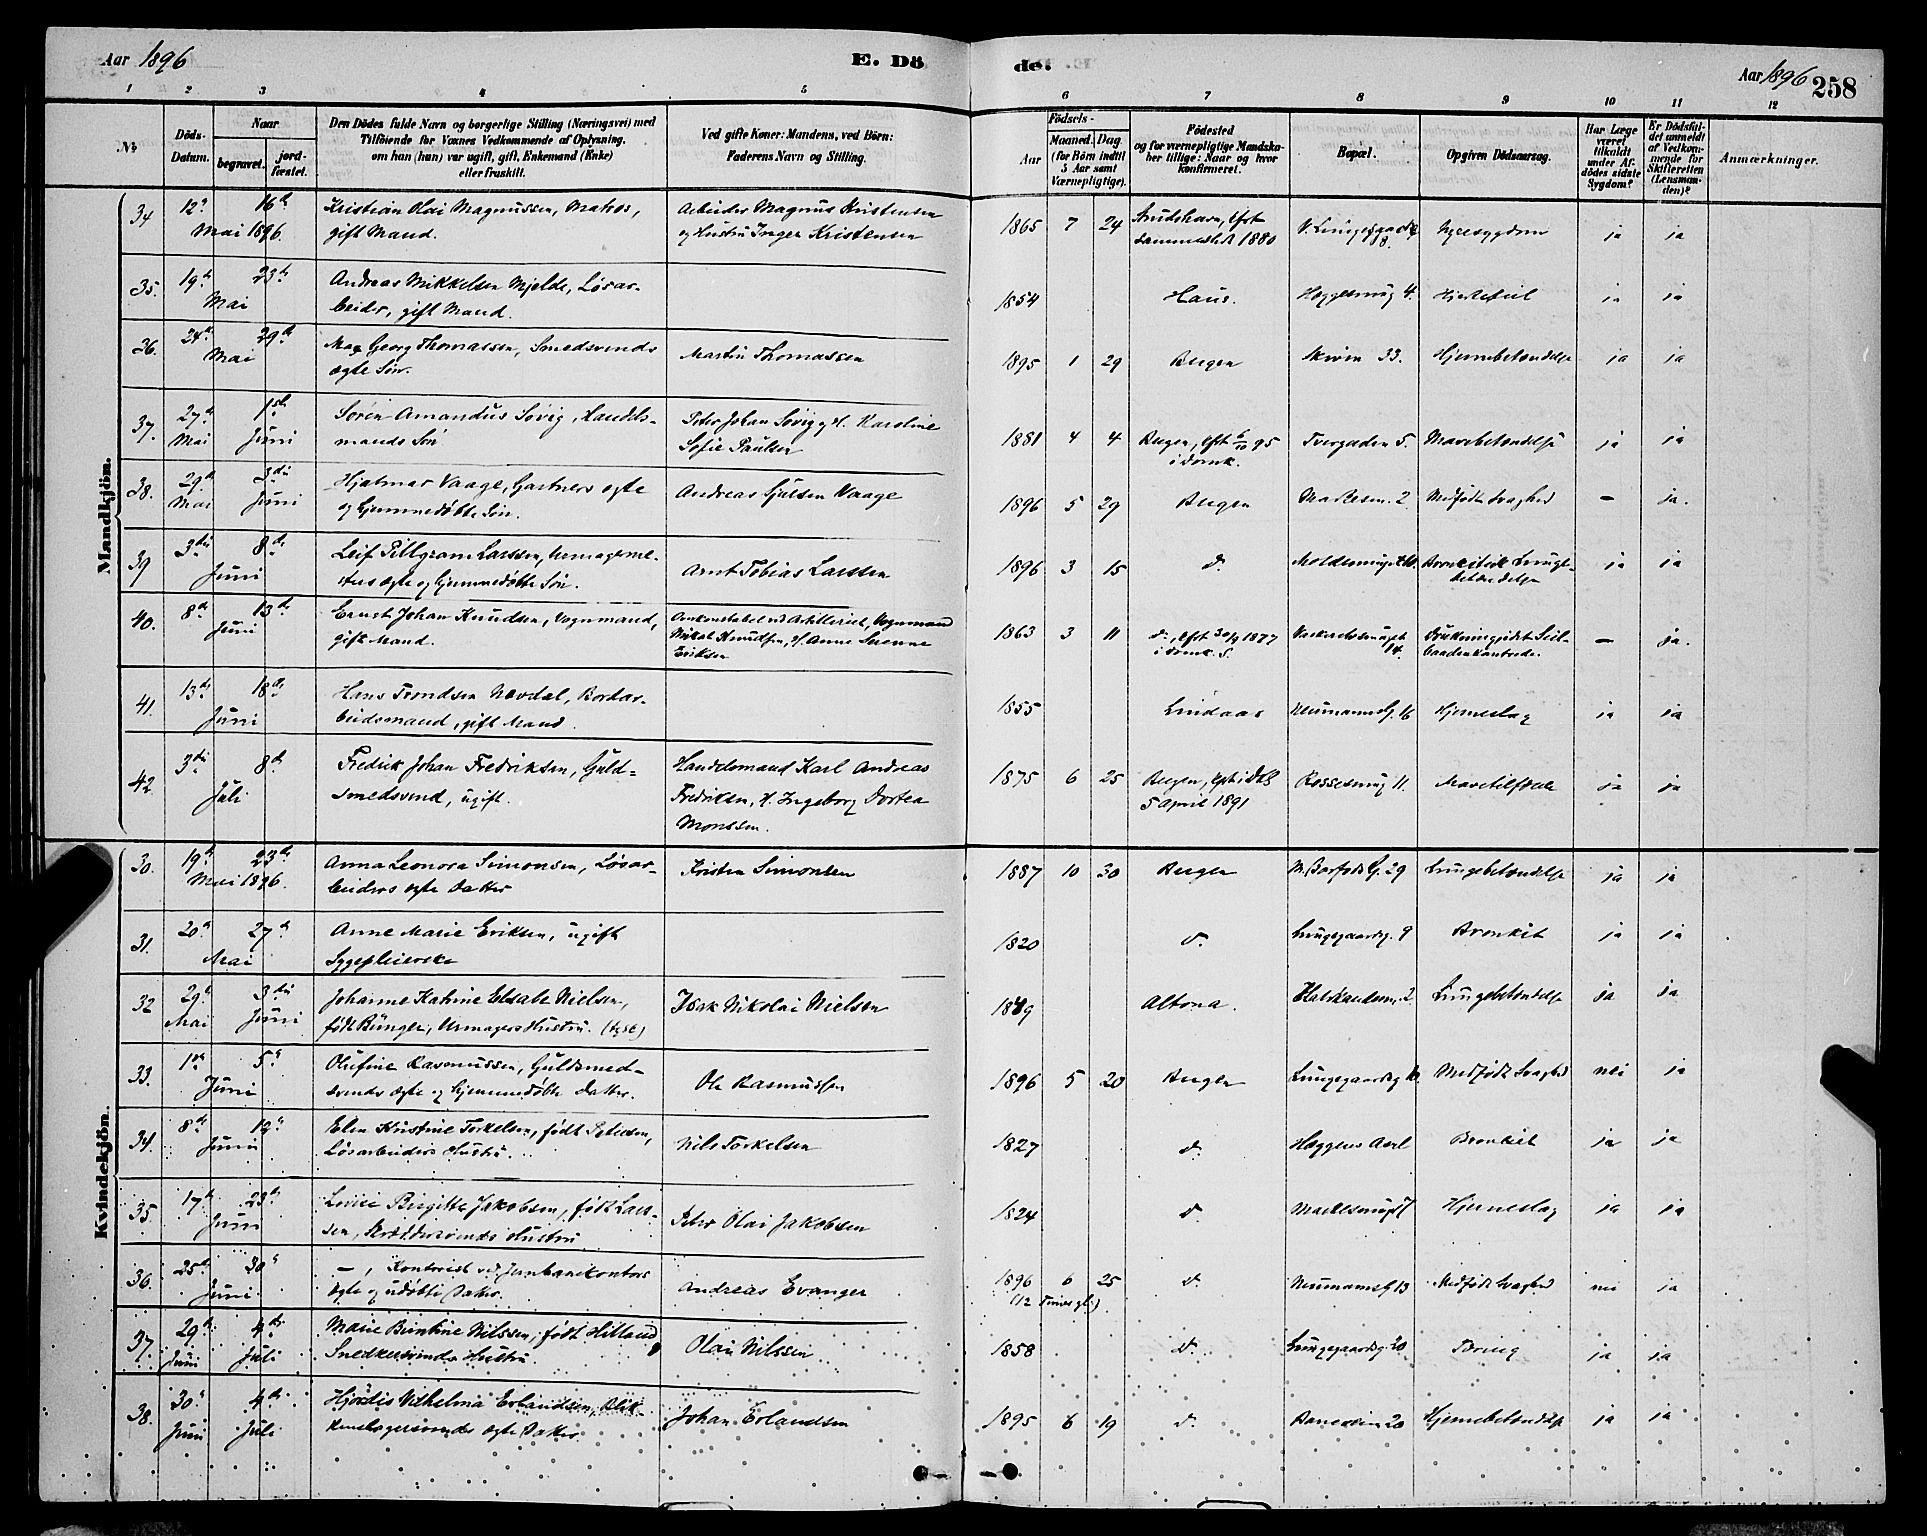 Aar 1896
E. Dö
de.
Aar 1896 258
1 2 3 4 5 6 7 8 9 10 11 12
№
Döds-
Datum.
Naar
begravet. jord-
fæstet.
Den Dödes fulde Navn og borgerlige Stilling (Næringsvei) med
Tilföiende for Voxnes Vedkommende af Oplysning,
om han (hun) var ugift, gift, Enkemand (Enke)
eller fraskilt.
Ved gifte Koner: Mandens, ved Börn:
Faderens Navn og Stilling.
Födsels-
Aar
Maaned. Dag.
(for Börn indtil
5 Aar samt
Værnepligtige).
Födested
og for værnepligtige Mandska-
ber tillige: Naar og hvor
konfirmeret.
Bopæl.
Opgiven Dödsaarsag.
Har Læge
været
tilkaldt
under Af-
dödes sidste
Sygdom?
Er Dödsfal-
det anmeldt
af Vedkom-
mende for
Skifteretten
(Lensman-
den)?
Anmærkninger.
Mandkjön.
34 12te 16de Kristian Olai Magnussen, Matros, Arbeider Magnus Kristensen 1865 7 24 Nyresygdom ja ja
Mai 1896. gift Mand. og Hustru Inger Kristensen sammesteds 1880
35. 19de 23de Andreas Mikkelsen Mjelde, Løsar- 1854 Haus. Hæggesmug 4. Hjertefeil ja ja
Mai beider, gift Mand.
36. 24de 29de Max Georg Thomassen, Smedsvends Martin Thomassen 1895 1 29 Bergen Skiven 33. Hjernebetændelse ja ja
Mai ægte Søn.
37. 27de 1ste Søren Amandus Søvig, Handels- Peter Johan Søvig og H. Karoline 1881 4 4 Bergen, cfst 6/10 95 Tvergaden 5. Mavebetændelse ja ja
Mai Juni mands Søn Sofie Paulsen i Domk.
38. 29de 3die Hjalmar Vaage, Gartners ægte Andreas Gjertsen Vaage 1896 5 29 Bergen Markesm. 2 Medfødt Svaghed — ja.
Mai Juni og hjemmedøbte Søn.
39 3die 8de Leif Pillgram Larssen, Urmagerme- Arnt Tobias Larssen 1896 3 15 do. Bronkitisk Lunge- ja ja
Juni sters ægte og hjemmedøbte Søn. betændelse
40. 8de 13de Ernst Johan Knudsen, Vognmand, Underkonstabel ved Artilleriet, Vognmand 1863 3 11 do., cfst 30/9 1877 — ja.
Juni gift Mand. Nikol. Knudsen, H. Anne Eriksen i Domk. 14.
41. 13de 18de Hans Trondsen Nævdal, Bordar- 1855 Lindaas Neumannsg. 16 Hjerneslag ja ja
Juni beidsmand, gift Mand.
42. 3die 8de Fredrik Johan Fredriksen, Guld- Handelsmand Karl Andreas 1875 6 25 Bergen, cfst i Dk. Rossesmug 11. Mavetilfælde ja ja
Juli smedsvend, ugift. Fredriksen, H. Ingeborg Dortea 5 April 1891
Monssen.
Kvindekjön.
30. 19de 23de Anna Leonora Simonsen, Løsar- Kristen Simonsen 1887 10 30 Bergen 29 Lungebetændelse ja ja
Mai 1896. beiders ægte Datter
31. 20de 27de Anne Marie Eriksen, ugift 1820 do. Lungegaardsg. 9 Bronkit ja ja
Mai Sygepleierske
32 29de 3die Johanne Katrine Elsabe Nielsen, Isak Nikolai Nielsen 1819 Altona. 2 Lungebetændelse ja ja
Mai Juni født Bünger, Urmagers Hustru.
33. 1ste 5te Olufine Rasmussen, Guldsmed- Ole Rasmussen 1896 5 20 Bergen Medfødt Svaghed nei ja
Juni svends ægte og hjemmedøbte Datter.
34. 8de 12te Elen Kristine Torkelsen, født Petersen, Nils Torkelsen 1827 do. Bronkit ja ja
Juni Løsarbeiders Hustru.
35. 17de 23de Lovise Birgitte Jakobsen, født Lars- Peter Olai Jakobsen 1824 do. Hjerneslag ja ja
Juni sen, Skræddersvends Hustru
36. 25de 30te —, Kontorist ved Jernbanekontors Andreas Evanger 1896 6 25 do. Neumannsg. 13 Medfødt Svaghed nei ja
Juni ægte og udøbte Datter. (12 Timer gl.)
37. 29de 4de Marie Berntine Nilssen, født Hilland, Olai Nilssen 1858 do. Lungegaardsg. 20 Tæring ja ja
Juni Juli Snedkersvends Hustru.
38. 30te 4de Hjördis Vilhelmina Erlandsen, Blik- Johan Erlandsen 1895 6 19 do. 20 Hjernebetændelse ja ja
Juni Juli kenslagersvends ægte Datter.